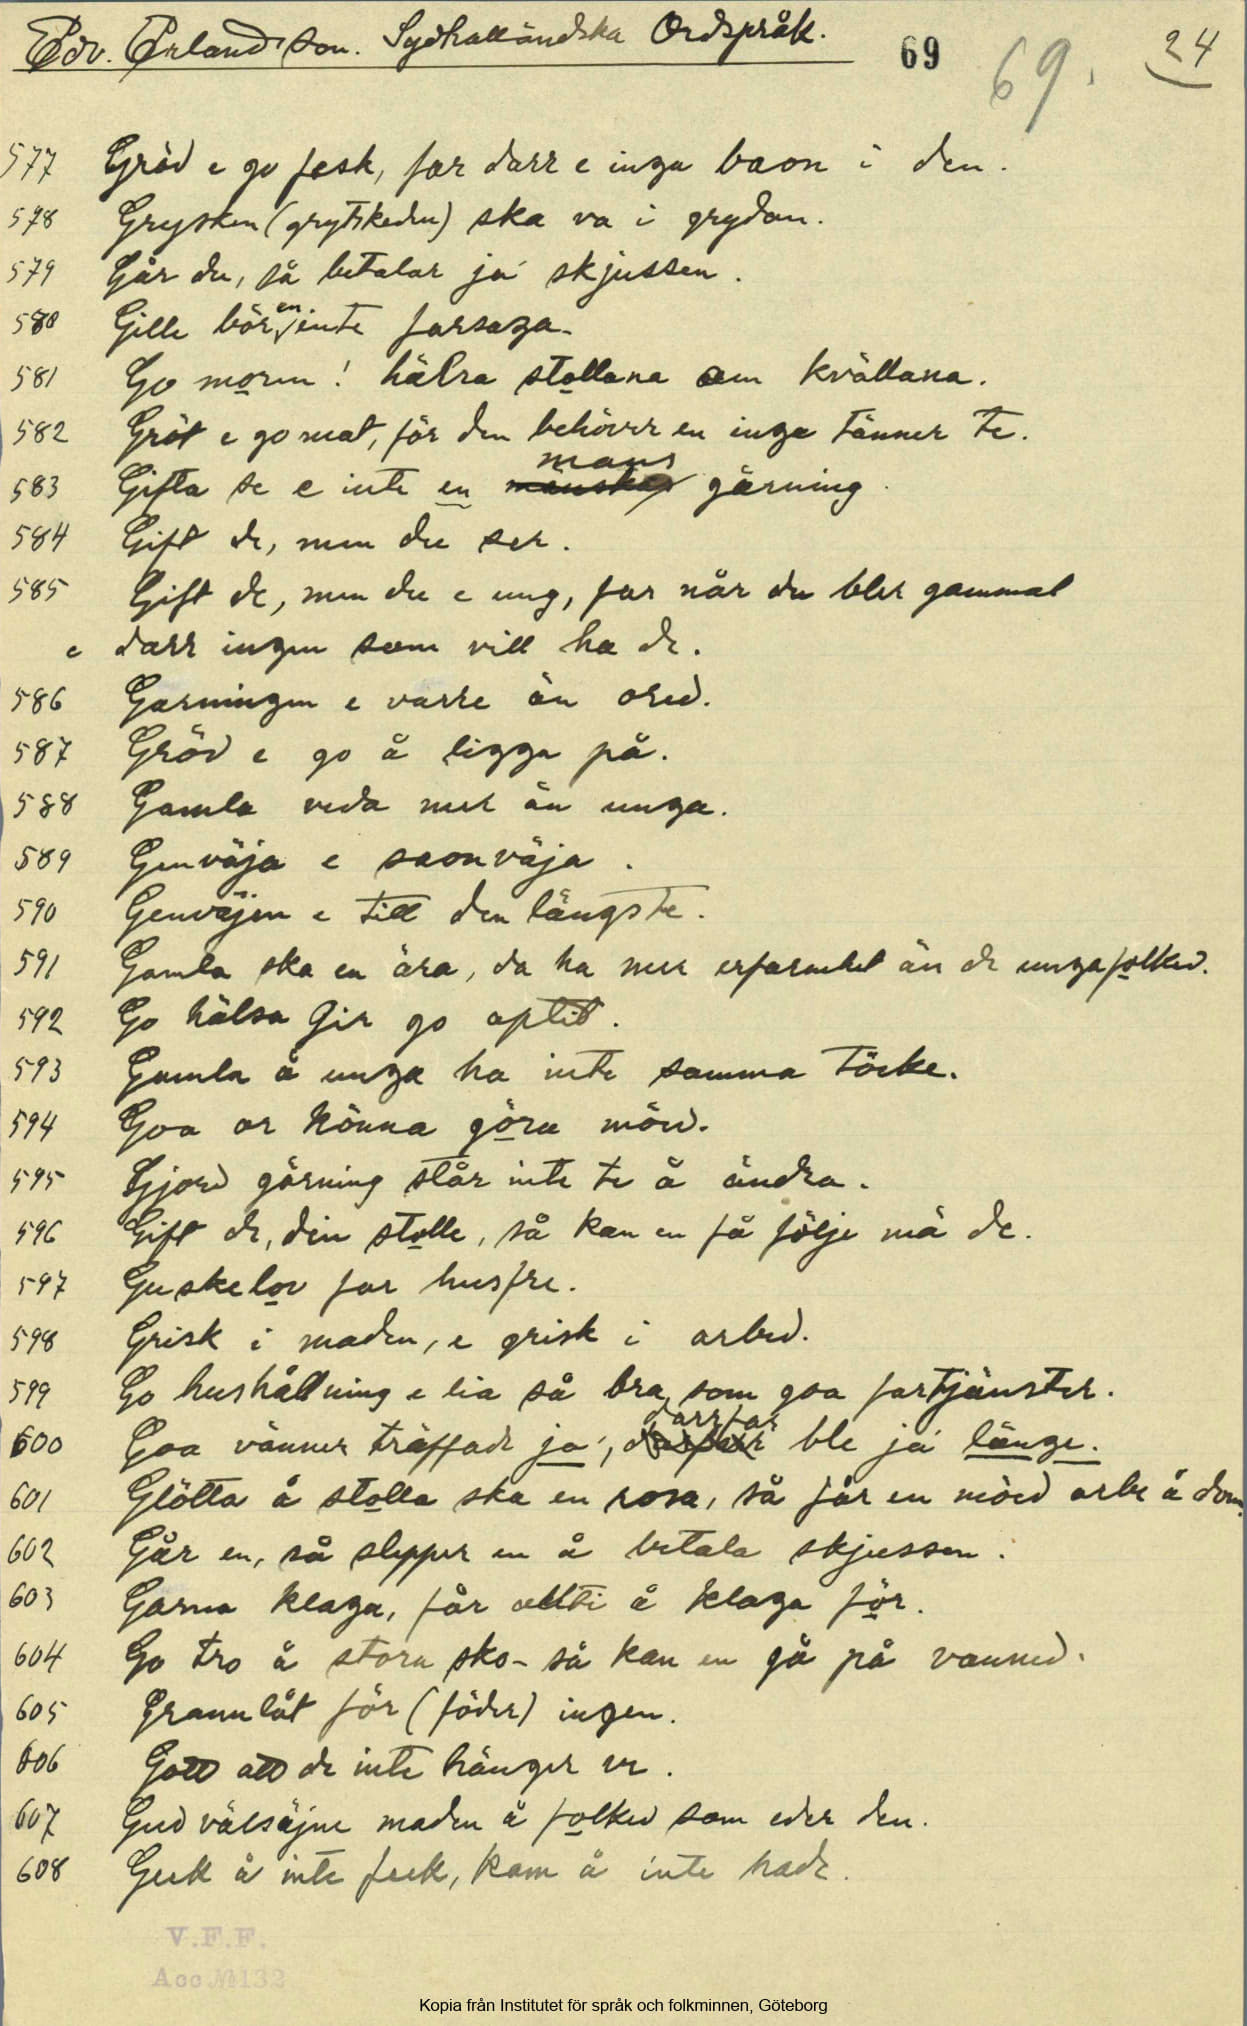 Edv. Erlandsson. Sydhalländska Ordspråk. 69 69. 24
577 Gröd e go fesk, far darr e inga baon i den.
578 Grysken (grytskeden) ska va i grydan.
579 Går du, så betalar ja skjussen.
580 Gille bör en inte farsaga.
581 Go moren! hälsa stollana om kvällana.
582 Gröt e go mat, för den behöver en inga tänner te.
583 Gifta se e inte en mans gärning.
584 Gift de, men du ser.
585 Gift de, men du e ung, far når du bler gammal
e darr ingen som vill ha de.
586 Garningen e varre än ored.
587 Gröd e go å ligga på.
588 Gamla veda mer än unga.
589 Genväja e saonväja.
590 Genväjen e till den längste.
591 Gamla ska en ära, da ha mer erfarenhet än de unga folked.
592 Go hälsa gir go aptit.
593 Gamla å unga ha inte samma töcke.
594 Goa or könna göra möed.
595 Gjord gärning står inte te å ändra.
596 Gift de, din stolle, så kan en få följe mä de.
597 Guskelov far husfre.
598 Grisk i maden, e grisk i arbed.
599 Go hushållning e lia så bra, som goa fartjänster.
600 Goa vänner träffade ja, darrfar ble ja länge.
601 Glötta å stolla ska en rosa, så får en möed arbe å dom.
602 Går en, så slepper en å betala skjussen.
603 Garna klaga, får allti å klaga för.
604 Go tro å stora sko - så kan en gå på vanned.
605 Grannlåt för (föder) ingen.
606 Gott att de inte hänger ve.
607 Gud välsäjne maden å folked som eder den.
608 Geck å inte feck, kam å inte hade.
V.F.F.
Acc №132
Kopia från Institutet för språk och folkminnen, Göteborg